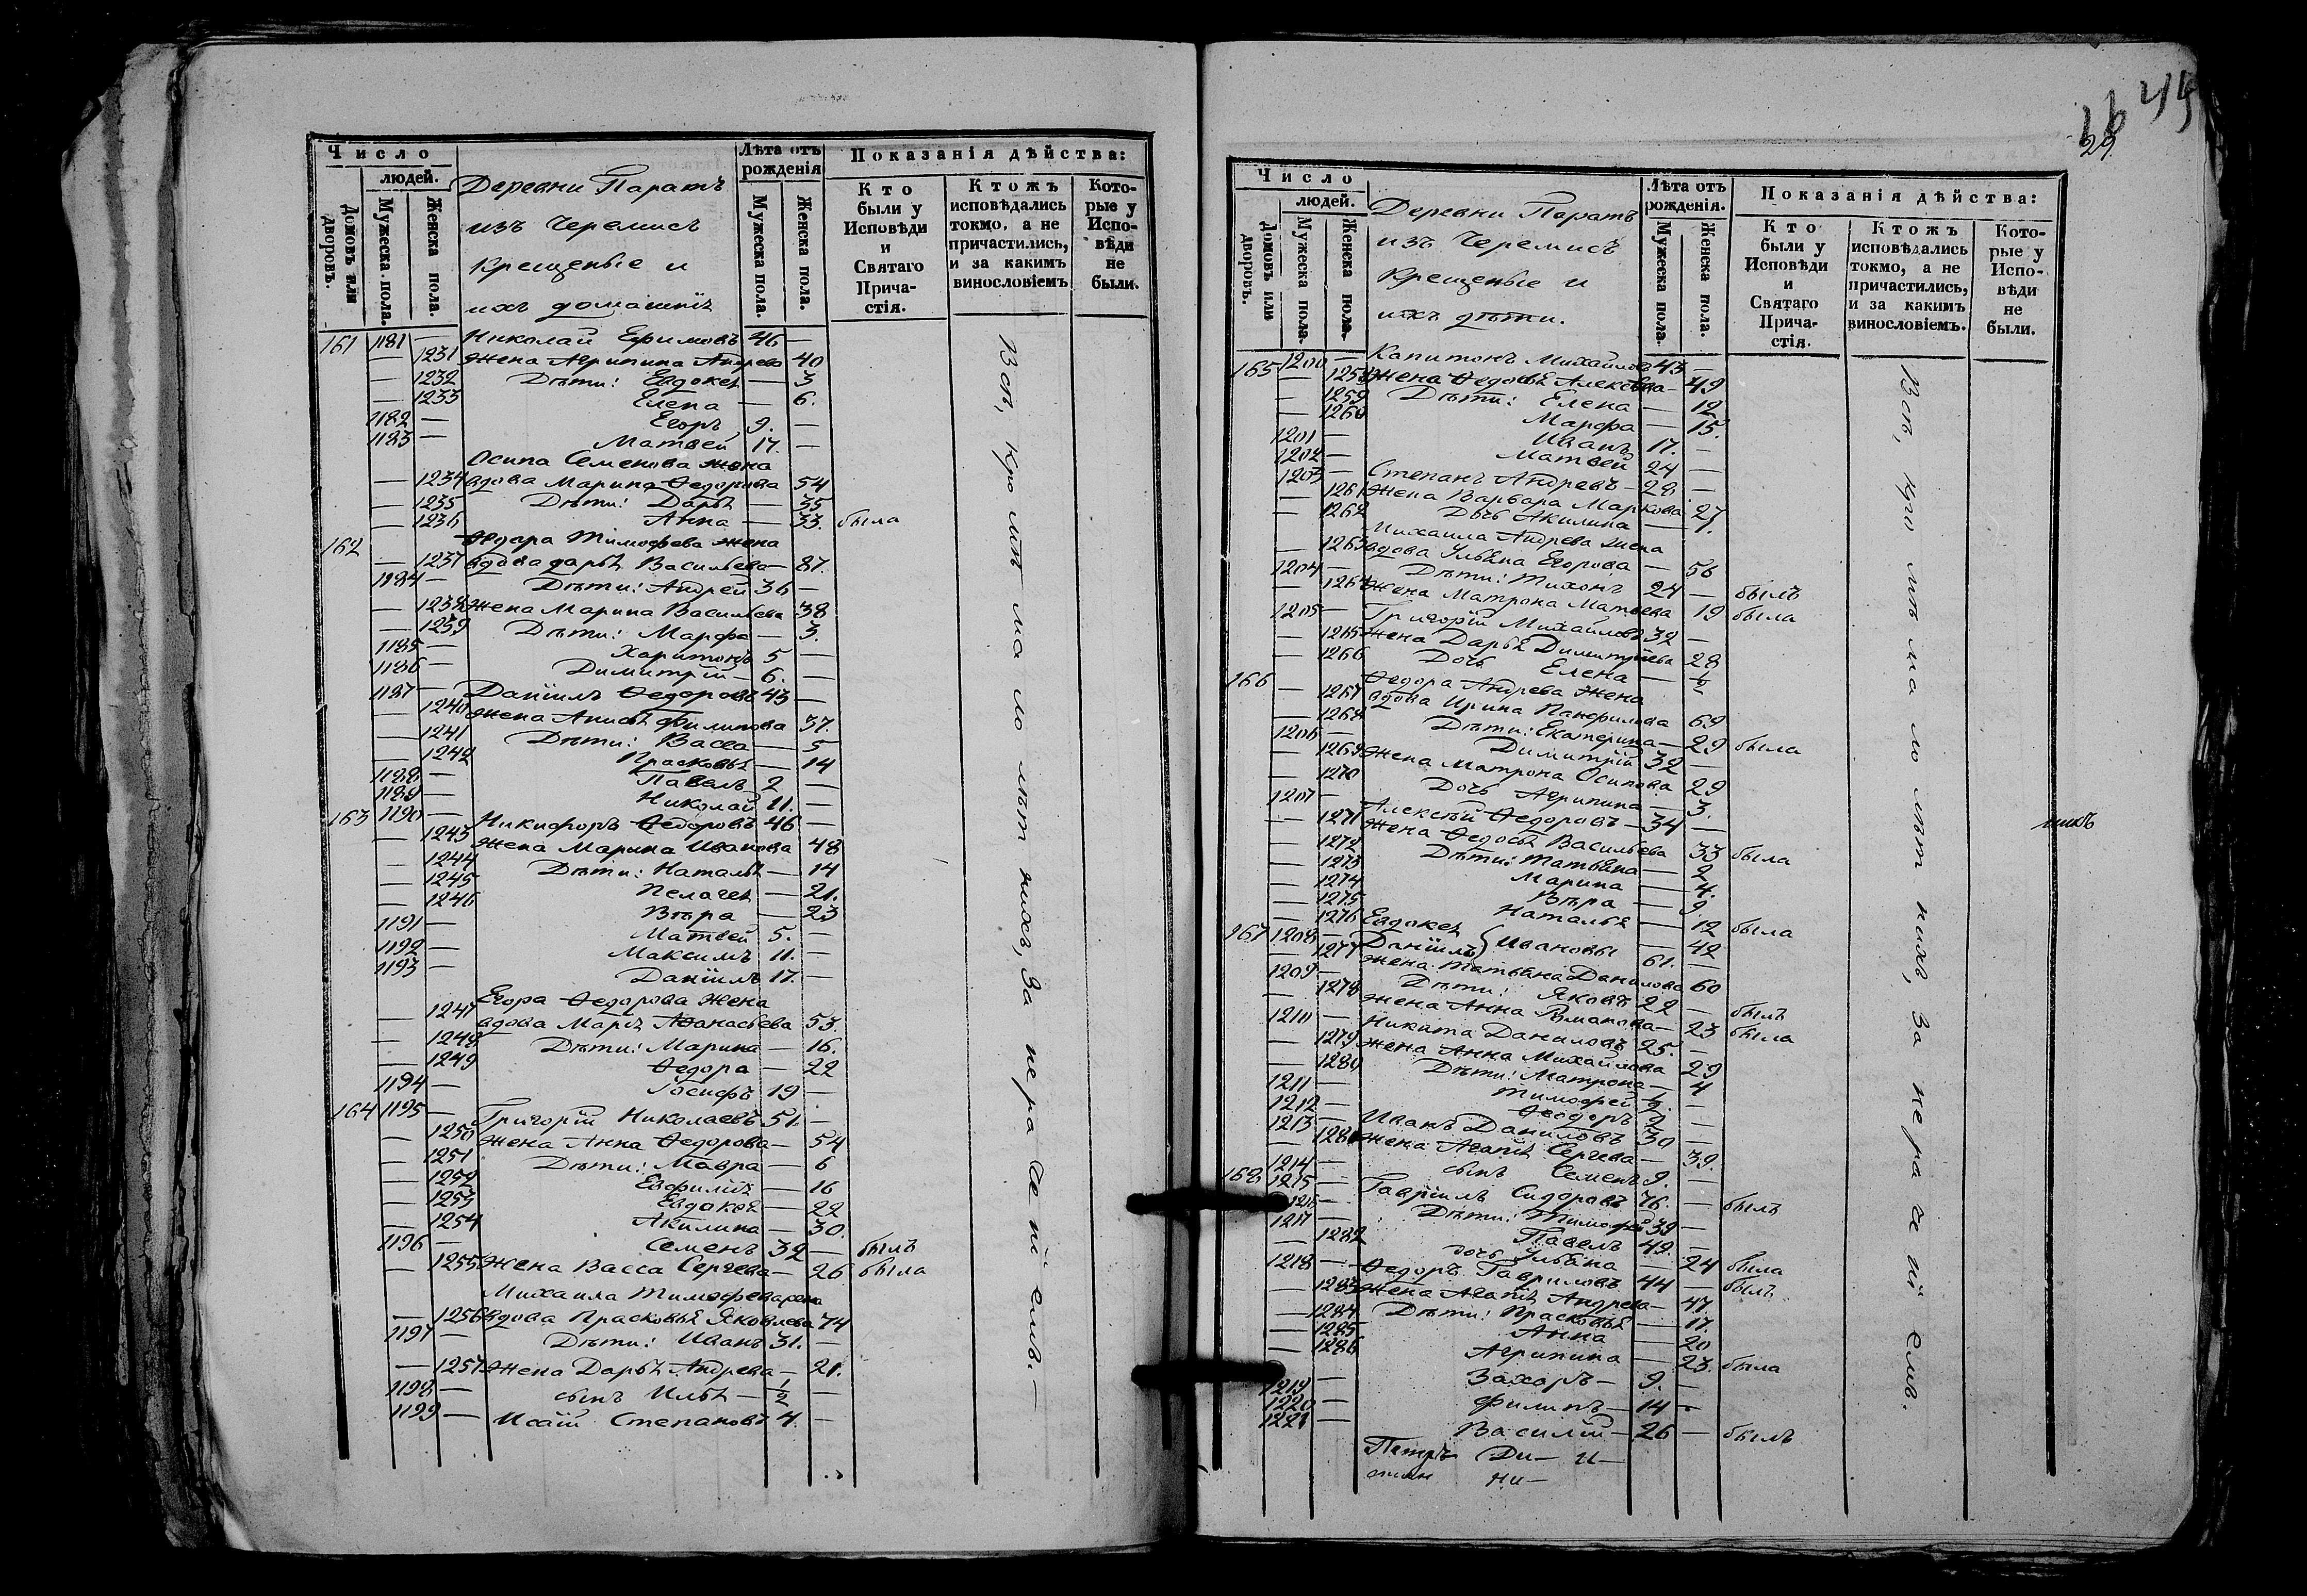 Число
людей.
Домовъ или дворовъ.
Мужеска пола.
Женска пола.
Деревни Паратъ
изъ Черемисъ
Крещеные и
ихъ домашніе
Лѣта отъ рожденія
Мужеска пола.
Женска пола.
Показанія дѣйства:
Кто были у Исповѣди и Святаго Причастія.
Ктожъ исповѣдались токмо, а не причастились, и за какимъ винословіемъ
Которые у Исповѣди не были.
161 1181 — Николай Ефимовъ 46 —
— 1231 Жена Агрипина Андрева 40
— 1232 Дѣти: Евдокеѣ — 3
— 1233 Елена — 6.
1182 — Егоръ 9. —
1183 — Матвей 17. —
Осипа Семенова жена
— 1234 вдова Марина Ѳедорова 54
— 1235 Дѣти: Дарьѣ — 35
— 1236 Анна — 33. была
162 Ѳедора Тимофева жена
— 1237 вдова дарьѣ Васильева — 87.
1184 — Дѣти: Андрей 36 —
— 1238 Жена Марина Васильева 38
— 1239 Дѣти: Марфа — 3.
1185 — Харитонъ 5 —
1186 — Димитрій — 6. —
1187 — Даніилъ Ѳедоровъ 43 —
— 1240 Жена Анисьѣ Филипова 37.
— 1241 Дѣти: Васса — 5
— 1242 Прасковьѣ — 14
1188 — Павелъ 2 —
1189 — Николай 11. —
163 1190 — Никифоръ Ѳедоровъ 46 —
— 1243 Жена Марина Иванова 48
— 1244 Дѣти: Натальѣ — 14
— 1245 Пелагеѣ — 21.
— 1246 Вѣра — 23
1191 — Матвей 5. —
1192 — Максимъ 11. —
1193 — Даніилъ 17. —
Егора Ѳедорова Жена
— 1247 вдова Марьѣ Аѳанасьева 53.
— 1248 Дѣти: Марина — 16.
— 1249 Ѳедора — 22
1194 — Іосифъ 19 —
164 1195 — Григорій Николаевъ 51. —
— 1250 Жена Анна Ѳедорова — 54
— 1251 Дѣти: Мавра — 6
— 1252 Евфиміѣ — 16
— 1253 Евдокеѣ — 22
— 1254 Акилина — 30.
1196 — Семенъ 32 — былъ
— 1255 Жена Васса Сергева — 26 была
Михаила Тимофева жена
— 1256 Вдова Прасковьѣ Яковлева 74
1197 — Дѣти: Иванъ 31. —
— 1257 Жена Дарьѣ Андрева — 21.
1198 — сынъ Ильѣ — 1/2 —
1199 — Исаій Степановъ 4. —
Всѣ, кромѣ малолѣтнихъ, за нераченіемъ. —
29
Число
людей.
Домовъ или дворовъ.
Мужеска пола
Женска пола.
Деревни Паратъ
изъ Черемисъ
Крещеные и
ихъ дѣти.
Лѣта отъ рожденія.
Мужеска пола
Женска пола.
Показанія дѣйства:
Кто были у Исповѣди и Святаго Причастія.
Ктожъ исповѣдались токмо, а не причастились, и за какимъ винословіемъ.
Которые у Исповѣди не были.
165 1200 — Капитонъ Михайлова 43 —
— 1258 Жена Ѳедосьѣ Алексева — 49
— 1259 Дѣти: Елена — 12
— 1260 Марфа — 15.
1201 — Иванъ 17. —
1202 — Матвей 24 —
1203 — Степанъ Андревъ — 28 —
— 1261 Жена Варвара Маркова 27
— 1262 Дочь Акилина — 1.
Михаила Андрева жена
— 1263 вдова Ульѣна Егорова — 56
1204 — Дѣти: Тихонъ 24 — былъ
— 1264 Жена Матрона Матвева 19 была
1205 — Григорій Михайловъ 32 —
— 1265 Жена Дарьѣ Димитріева 28
— 1266 Дочь Елена — 1/2
166 Ѳедора Андрева жена
— 1267 вдова Ирина Панфилова 69
— 1268 Дѣти: Екатерина — 29 была
1206 — Димитрій 32 —
— 1269 Жена Матрона Осипова 29
— 1270 Дочь Агрипина — 3.
1207 — Алексѣй Ѳедоровъ — 34 —
— 1271 Жена Ѳедосьѣ Васильева 33 была
— 1272 Дѣти: Татьѣна — 2
— 1273 Марина — 4.
— 1274 Вѣра — 9.
— 1275 Натальѣ — 12 была
— 1276 Евдокеѣ } Ивановы — 42
167 1208 — Даніилъ } 61. —
— 1277 Жена Татьѣна Данилова 60
1209 — Дѣти: Яковъ 22 — былъ
— 1278 Жена Анна Романова — 23 была
1210 — Никита Даниловъ 25. —
— 1279 Жена Анна Михайлова 29
— 1280 Дѣти: Матрона — 4
1211 — Тимофей 1/2. —
1212 — Ѳеодоръ 2 —
1213 — Иванъ Даниловъ 30 —
— 1281 Жена Агапіѣ Сергева — 39.
1214 — сынъ Семенъ 9. —
168 1215 — Гавріилъ Сидоровъ 76. — былъ
1216 — Дѣти: Тимофей 39 —
1217 — Павелъ 49. —
— 1282 дочь Ульѣна — 24 была
1218 — Ѳедоръ Гавриловъ 44 — былъ
— 1283 Жена Агапіѣ Андрева — 47.
— 1284 Дѣти: Прасковьѣ — 17.
— 1285 Анна — 20
— 1286 Агрипина — 23. была
1219 — Захаръ — 9. —
1220 — Филипъ — 14 —
1221 — Василій — 26 — былъ
Петръ Ди — и —
Всѣ, кромѣ малолѣтнихъ, за нераченіемъ.